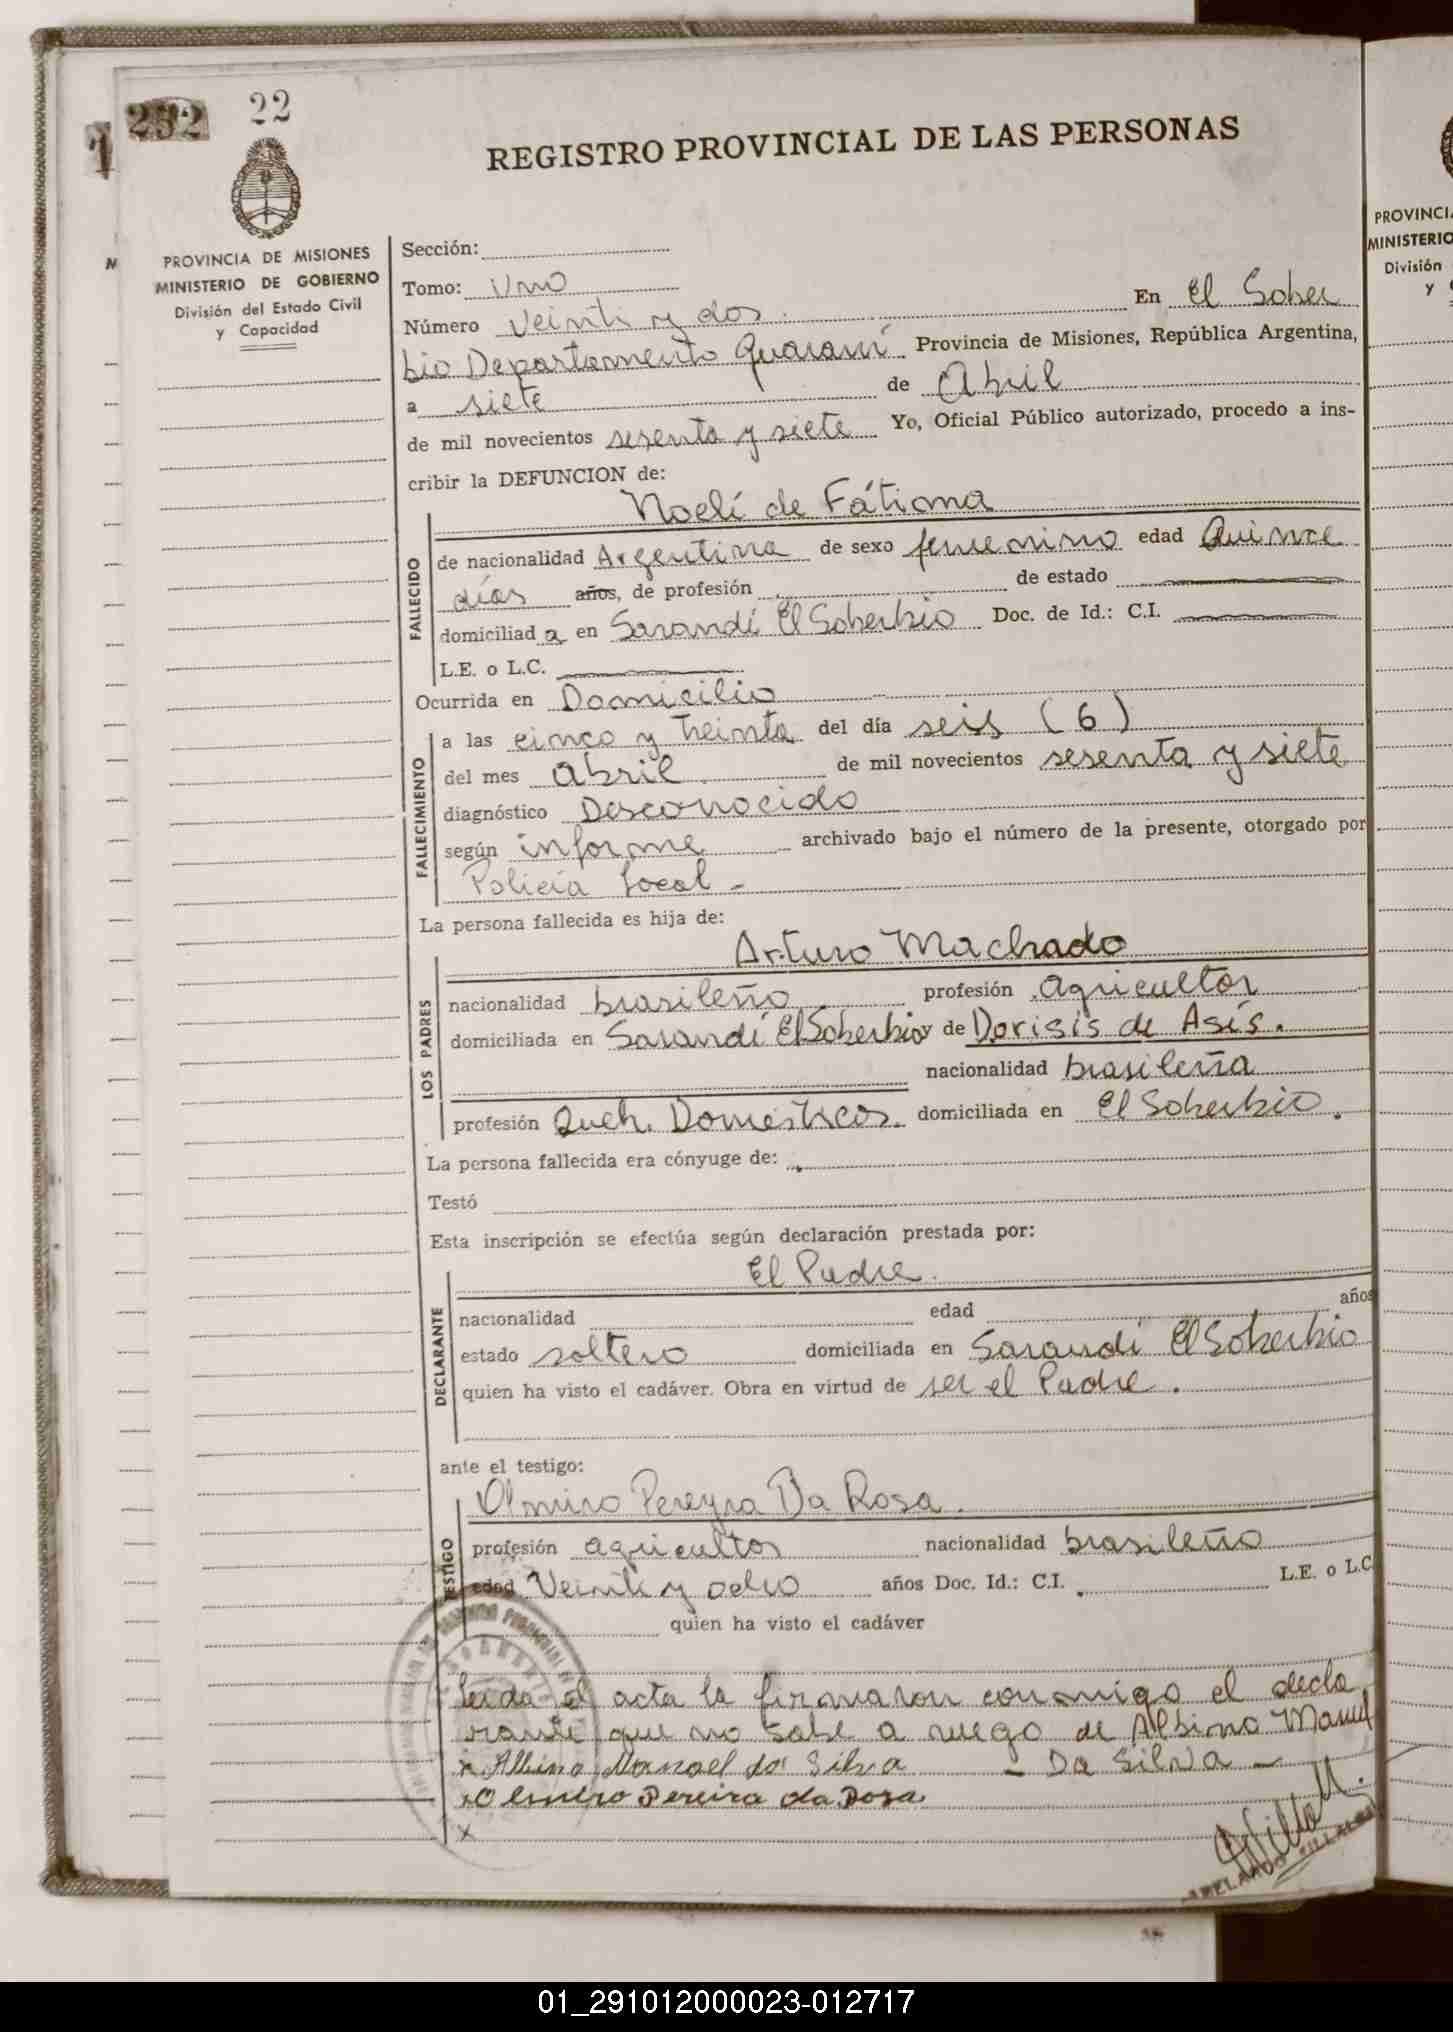 232 22
REGISTRO PROVINCIAL DE LAS PERSONAS
PROVINCIA DE MISIONES
MINISTERIO DE GOBIERNO
División del Estado Civil
y Capacidad
Sección:
Tomo: Uno
Número Veinti y dos. En El Sober
bio Departamento Guaraní Provincia de Misiones, República Argentina,
a siete de Abril
de mil novecientos sesenta y siete Yo, Oficial Público autorizado, procedo a ins-
cribir la DEFUNCION de:
Noelí de Fátima
FALLECIDO
de nacionalidad Argentina de sexo femenino edad Quince
días años, de profesión de estado
domiciliada en Sarandí El Soberbio Doc. de Id.: C.I.
L.E. o L.C.
Ocurrida en Domicilio
FALLECIMIENTO
a las cinco y treinta del día seis (6)
del mes abril de mil novecientos sesenta y siete
diagnóstico Desconocido
según informe archivado bajo el número de la presente, otorgado por
Policía local -
La persona fallecida es hija de:
Arturo Machado
LOS PADRES
nacionalidad brasileño profesión agricultor
domiciliada en Sarandí El Soberbio y de Dorisis de Asís.
nacionalidad brasileña
profesión Queh. Domésticos. domiciliada en El Soberbio.
La persona fallecida era cónyuge de:
Testó
Esta inscripción se efectúa según declaración prestada por:
El Padre.
DECLARANTE
nacionalidad edad años
estado soltero domiciliada en Sarandí El Soberbio
quien ha visto el cadáver. Obra en virtud de ser el Padre.
ante el testigo:
Olmiro Pereyra Da Rosa.
TESTIGO
profesión agricultor nacionalidad brasileño
edad Veinti y ocho años Doc. Id.: C.I. L.E. o L.C
quien ha visto el cadáver
leída el acta la firmaron conmigo el decla
rante que no sabe a ruego de Albino Manuel
Albino Manoel da Silva - Da Silva -
Olmiro Pereira da Rosa
x
PROVINCI
MINISTERIO
División
y
01_291012000023-012717